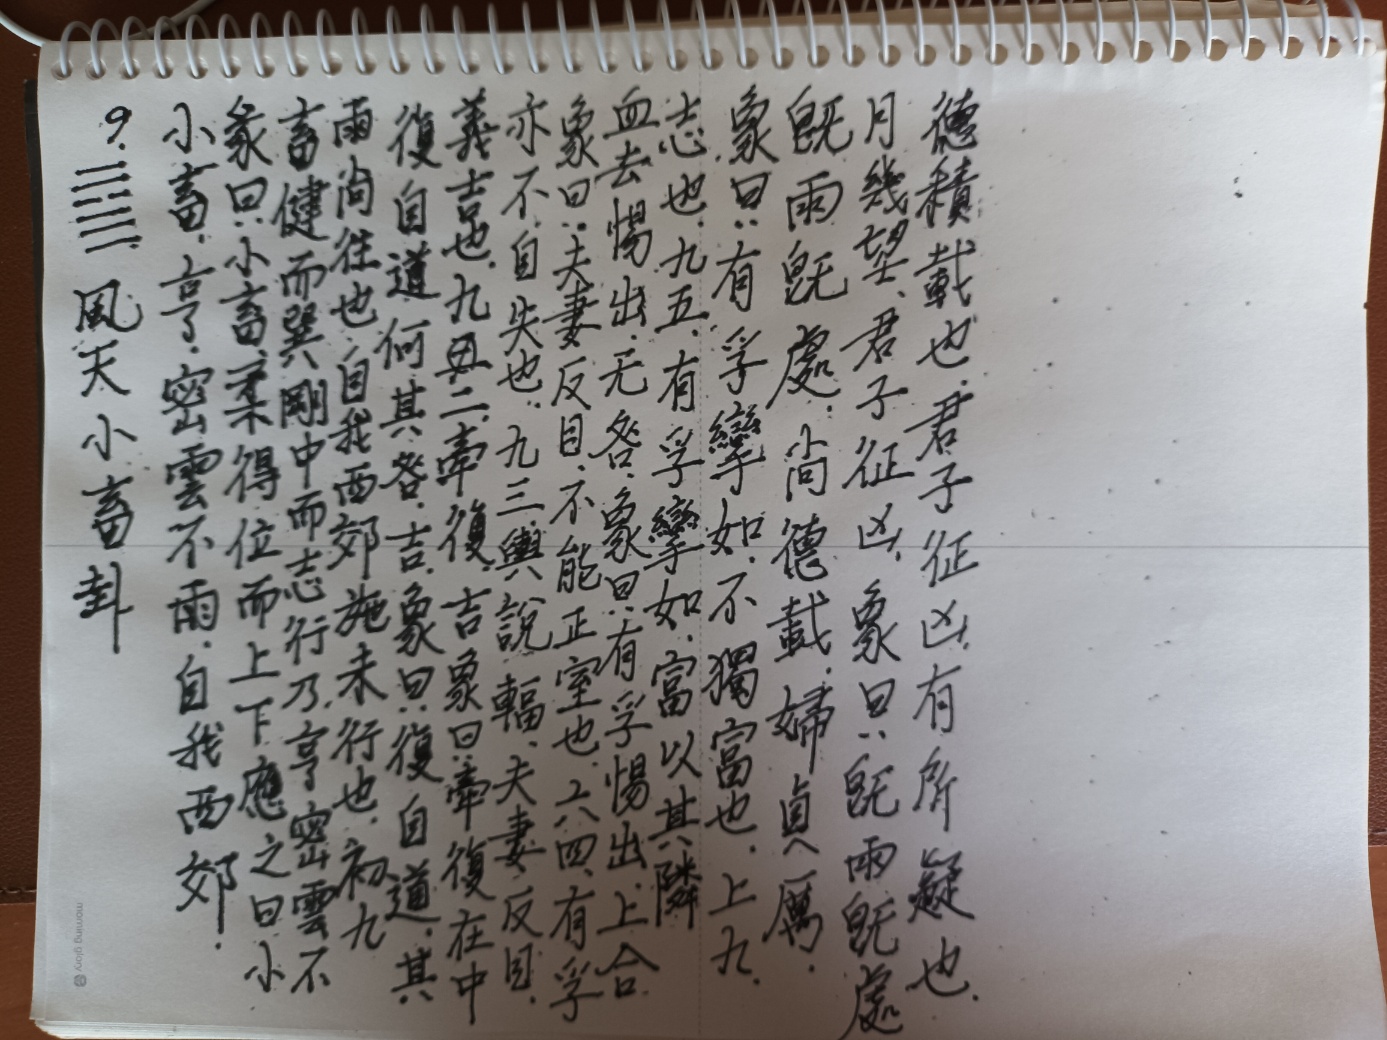 9. ䷈ 風天小畜卦
小畜.亨.密雲不雨.自我西郊.
彖曰.小畜.柔得位而上下應之曰小
畜健而巽剛中而志行乃亨密雲不
雨尙往也.自我西郊施未行也.初九
復自道何其咎.吉.象曰.復自道.其
義吉也.九二.牽復.吉象曰.牽復在中
亦不自失也.九三.輿說輻.夫妻反目.
象曰:夫妻反目.不能正室也.六四.有孚
血去惕出.无咎.象曰:有孚惕出.上合
志也.九五.有孚攣如.富以其隣
象曰:有孚攣如.不獨富也.上九.
旣雨旣處.尙德載.婦貞厲.
月幾望.君子征凶.象曰:旣雨旣處
德積載也.君子征凶.有所疑也.
morning glory